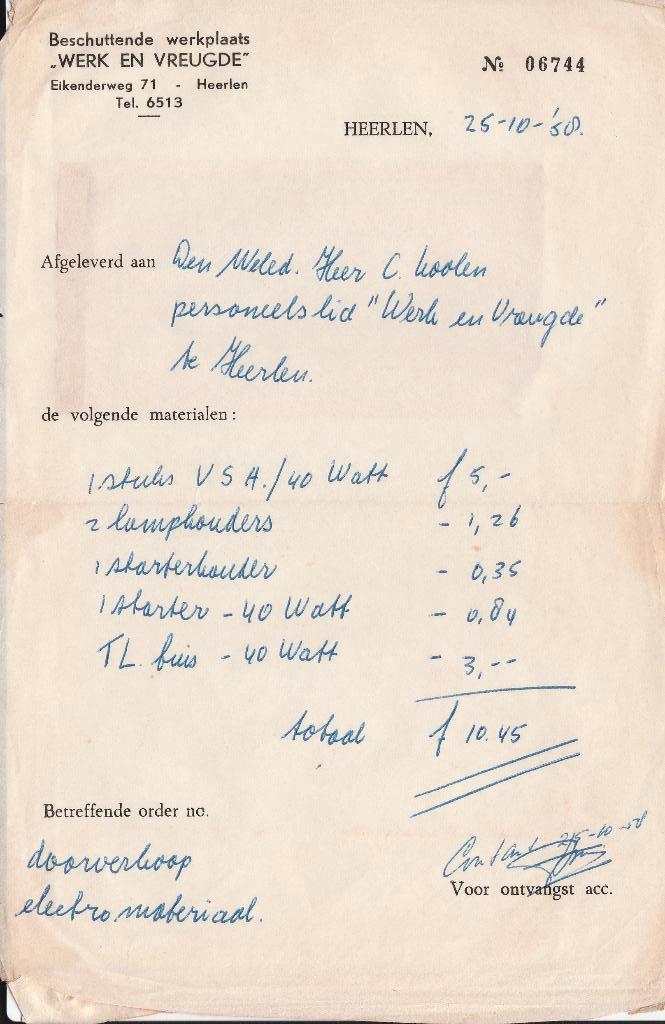 Beschuttende werkplaats
„WERK EN VREUGDE"
Eikenderweg 71 - Heerlen
Tel. 6513
№ 06744
HEERLEN, 25-10-'58.
Afgeleverd aan Den Weled. Heer C. Koolen
personeelslid "Werk en Vreugde"
te Heerlen.
de volgende materialen:
1 stuks V S A./40 Watt f 5,-
2 lamphouders - 1,26
1 starterhouder - 0,35
1 starter - 40 Watt - 0,84
TL. buis - 40 Watt - 3,--
totaal f 10.45
Betreffende order no.
doorverkoop
electro materiaal.
Contant 25-10-58
Voor ontvangst acc.